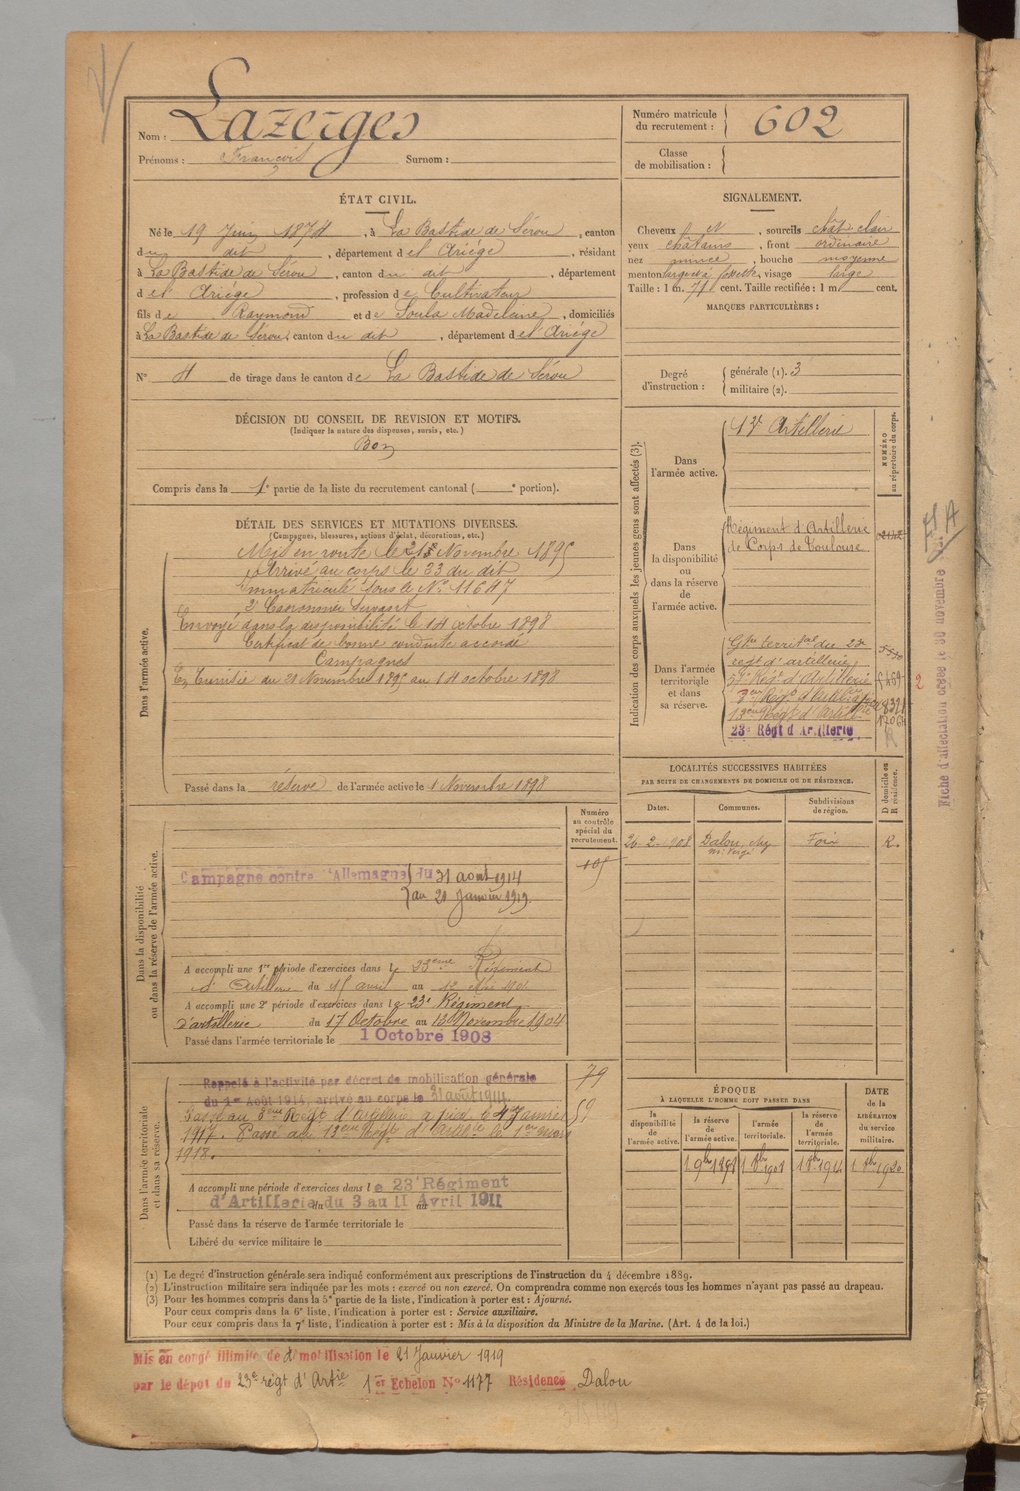 Nom : Lazerges
Prénoms : François Surnom :
Numéro matricule du recrutement : 602
Classe de mobilisation :
ÉTAT CIVIL.
Né le 19 Juin 1874, à La Bastide de Sérou, canton
du dit, département de l'Ariège, résidant
à La Bastide de Sérou, canton du dit, département
de l'Ariège, profession de Cultivateur
fils de Raymond et de Soula Madeleine, domiciliés
à La Bastide de Sérou, canton du dit, département de l'Ariège
N° 4 de tirage dans le canton de La Bastide de Sérou
SIGNALEMENT.
Cheveux et, sourcils chât clair
yeux châtains, front ordinaire
nez mince, bouche moyenne
menton large à fossette, visage large
Taille : 1 m. 71 cent. Taille rectifiée : 1 m cent.
MARQUES PARTICULIÈRES :
Degré d'instruction : générale (1). 3
militaire (2).
DÉCISION DU CONSEIL DE REVISION ET MOTIFS.
(Indiquer la nature des dispenses, sursis, etc.)
Bon
Compris dans la 1e partie de la liste du recrutement cantonal ( e portion).
DÉTAIL DES SERVICES ET MUTATIONS DIVERSES.
(Campagnes, blessures, actions d'éclat, décorations, etc.)
Dans l'armée active.
Mis en route le 21 Novembre 1895
Arrivé au corps le 23 du dit
Immatriculé sous le N° 11647
2e Canonnier servant
Envoyé dans la disponibilité le 14 octobre 1898
Certificat de bonne conduite accordé
Campagnes
En Tunisie du 21 Novembre 1895 au 14 octobre 1898
Passé dans la réserve de l'armée active le 1 Novembre 1898
Indication des corps auxquels les jeunes gens sont affectés (3).
NUMÉRO au répertoire du corps.
Dans l'armée active.
Artillerie
Dans la disponibilité ou dans la réserve de l'armée active.
Régiment d'Artillerie
de Corps de Toulouse
Dans l'armée territoriale et dans sa réserve.
Gpe territal du 23e
régt d'artillerie
23e Régt d'Artillerie
3eme Régt d'Artillerie à pied
13eme Régt d'Artie
23e Régt d'Artillerie
LOCALITÉS SUCCESSIVES HABITÉES
PAR SUITE DE CHANGEMENTS DE DOMICILE OU DE RÉSIDENCE.
Dates. Communes. Subdivisions de région. D domicile ou R résidence.
2-1908 Dalou Foix R.
Numéro au contrôle spécial du recrutement.
105
Dans la disponibilité ou dans la réserve de l'armée active.
Campagne contre l'Allemagne du 31 août 1914
au 20 Janvier 1919.
A accompli une 1re période d'exercices dans le 23eme Régiment
d'Artillerie du 15 avril au 12 Mai 1901
A accompli une 2e période d'exercices dans le 23e Régiment
d'artillerie du 17 Octobre au 13 Novembre 1904
Passé dans l'armée territoriale le 1 Octobre 1908
Dans l'armée territoriale et dans sa réserve.
79
59
Rappelé à l'activité par décret de mobilisation générale
du 1er Août 1914, arrivé au corps le 31 août 1914.
Passé au 3eme Régt d'artillerie à pied le 4 Janvier
1917. Passé au 13eme Régt d'Artillie le 1er mars
1918.
A accompli une période d'exercices dans le 23e Régiment
d'Artillerie du 3 au 11 Avril 1911
Passé dans la réserve de l'armée territoriale le
Libéré du service militaire le
ÉPOQUE
À LAQUELLE L'HOMME DOIT PASSER DANS
la disponibilité de l'armée active. la réserve de l'armée active. l'armée territoriale. la réserve de l'armée territoriale.
DATE de la LIBÉRATION du service militaire.
1 9bre 1898 1 8bre 1908 1 8bre 1914 1 8bre 1920.
(1) Le degré d'instruction générale sera indiqué conformément aux prescriptions de l'instruction du 4 décembre 1889.
(2) L'instruction militaire sera indiquée par les mots : exercé ou non exercé. On comprendra comme non exercés tous les hommes n'ayant pas passé au drapeau.
(3) Pour les hommes compris dans la 5e partie de la liste, l'indication à porter est : Ajourné.
Pour ceux compris dans la 6e liste, l'indication à porter est : Service auxiliaire.
Pour ceux compris dans la 7e liste, l'indication à porter est : Mis à la disposition du Ministre de la Marine. (Art. 4 de la loi.)
Mis en congé illimité de démobilisation le 21 Janvier 1919
par le dépôt du 23e régt d'Artie 1er Echelon N° 1177 Résidence Dalou
Fiche d'affectation créée le 30 novembre